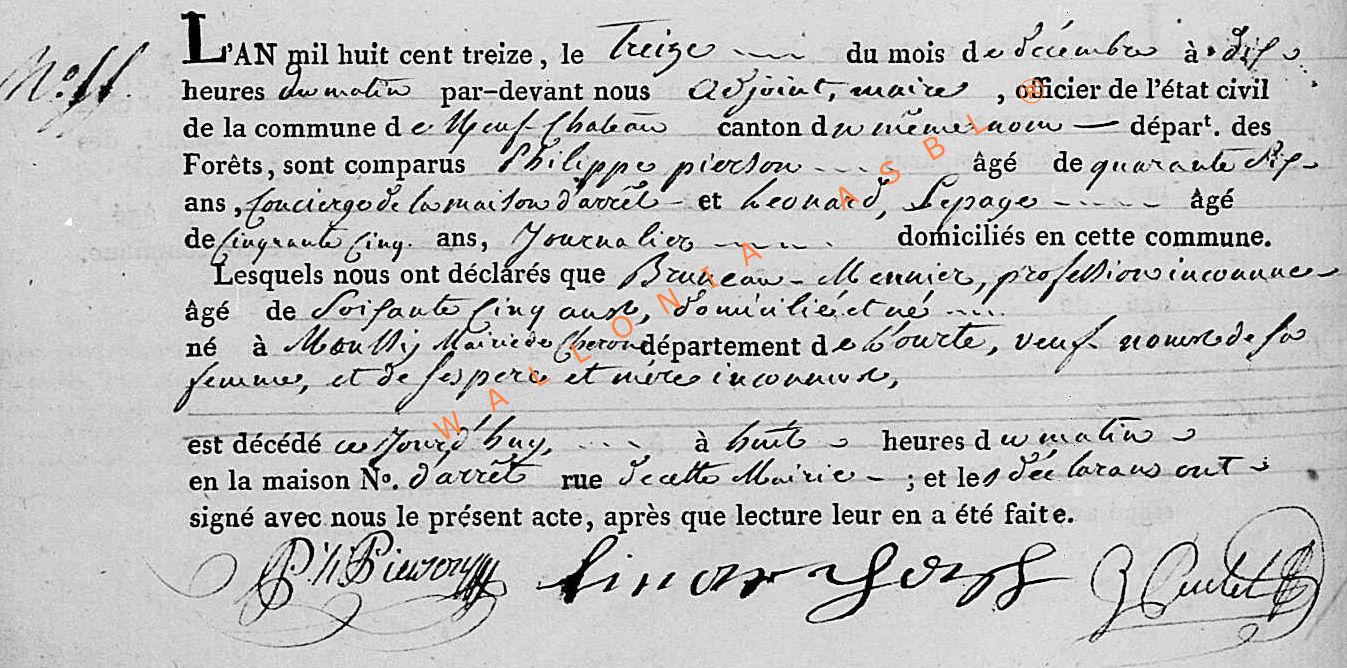 L'AN mil huit cent treize, le Treize du mois de décembre à dix
heures du matin par-devant nous adjoint, maire, officier de l'état civil
de la commune de Neuf-Chateau canton du même nom départ. des
Forêts, sont comparus Philippe pierson âgé de quarante
ans, Concierge de la maison d'arrêt et Leonard, Lepage âgé
de Cinquante Cinq. ans, Journalier domiciliés en cette commune.
Lesquels nous ont déclarés que Bruneau Meunier, profession inconnue
âgé de Soixante Cinq ans, domicilié et né
né à Mairie de département de L'ourte, veuf de sa
femme, et de ses pere et mére inconnus,
est décédé ce Jourd'huy, à huit heures du matin
en la maison No. d'arrêt rue de cette Mairie ; et les déclarans ont
signé avec nous le présent acte, après que lecture leur en a été faite.
WALLONIA ASBL ®